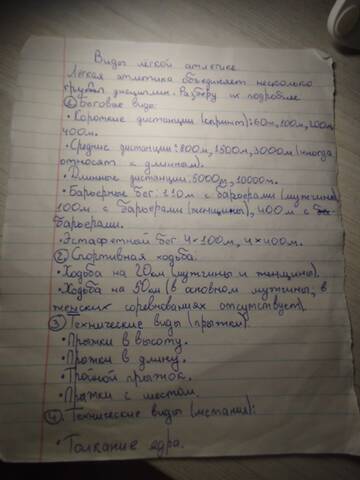 Виды лёгкой атлетике
Лёгкая атлетика объединяет несколько
групп дисциплин. Разберу их подробнее
① Беговые виды:
• Короткие дистанции (спринт): 60м, 100м, 200м,
400м.
• Средние дистанции: 800м, 1500м, 3000м (иногда
относят к длинным).
• Длинные дистанции: 5000м, 10000м.
• Барьерные бег: 110м с барьерами (мужчины),
100м с барьерами (женщины), 400м с
барьерами.
• Эстафетный бег 4×100м, 4×400м.
② Спортивная ходьба.
• Ходьба на 20км (мужчины и женщины).
• Ходьба на 50км (в основном мужчины, в
женских соревнованиях отсутствует)
③ Технические виды (прыжки):
• Прыжки в высоту.
• Прыжки в длину.
• Тройной прыжок.
• Прыжки с шестом.
④ Технические виды (метания):
• Толкание ядра.